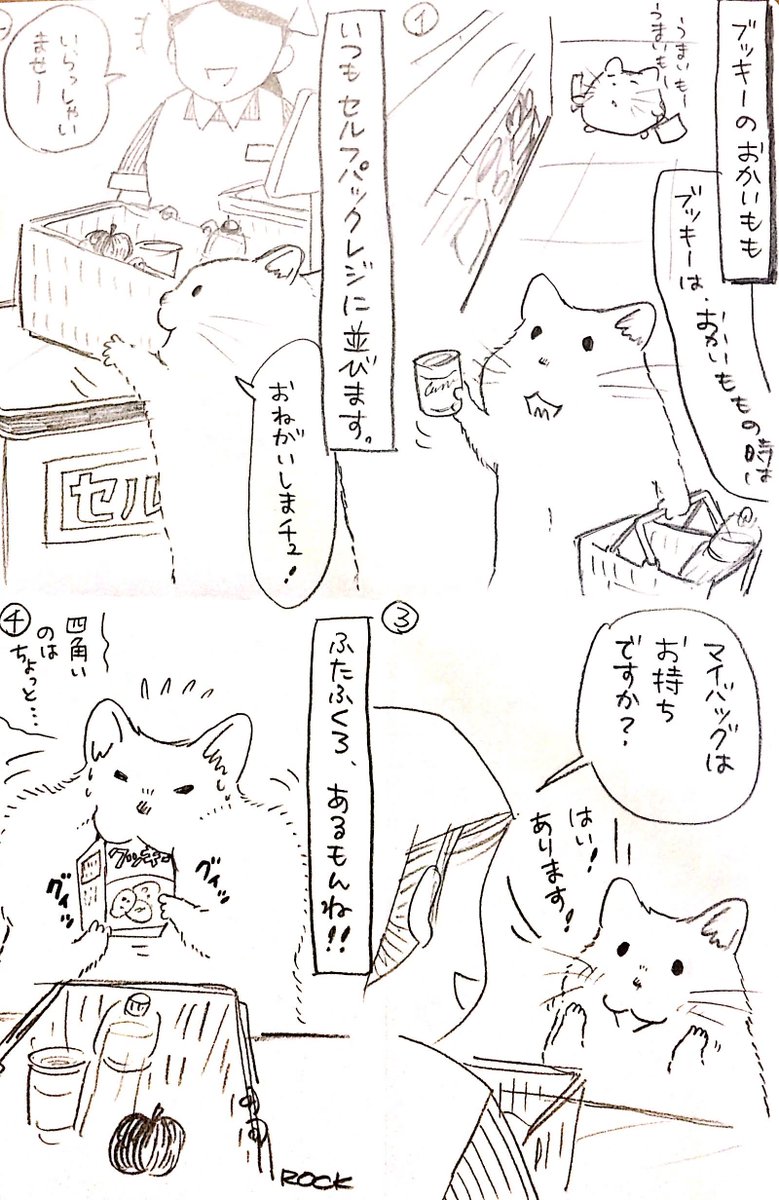 ブッキーのおかいもも
①
うまいもー
うまいもー
ブッキーは、おかいももの時は
いつもセルフパックレジに並びます。
いらっしゃい
ませー
おねがいしまチュ!
セル
③
マイバッグは
お持ち
ですか?
はい!
あります!
ふたふくろ、あるもんね!!
④
四角い
のは
ちょっと…
クッキー
グイッ
グイッ
ROCK